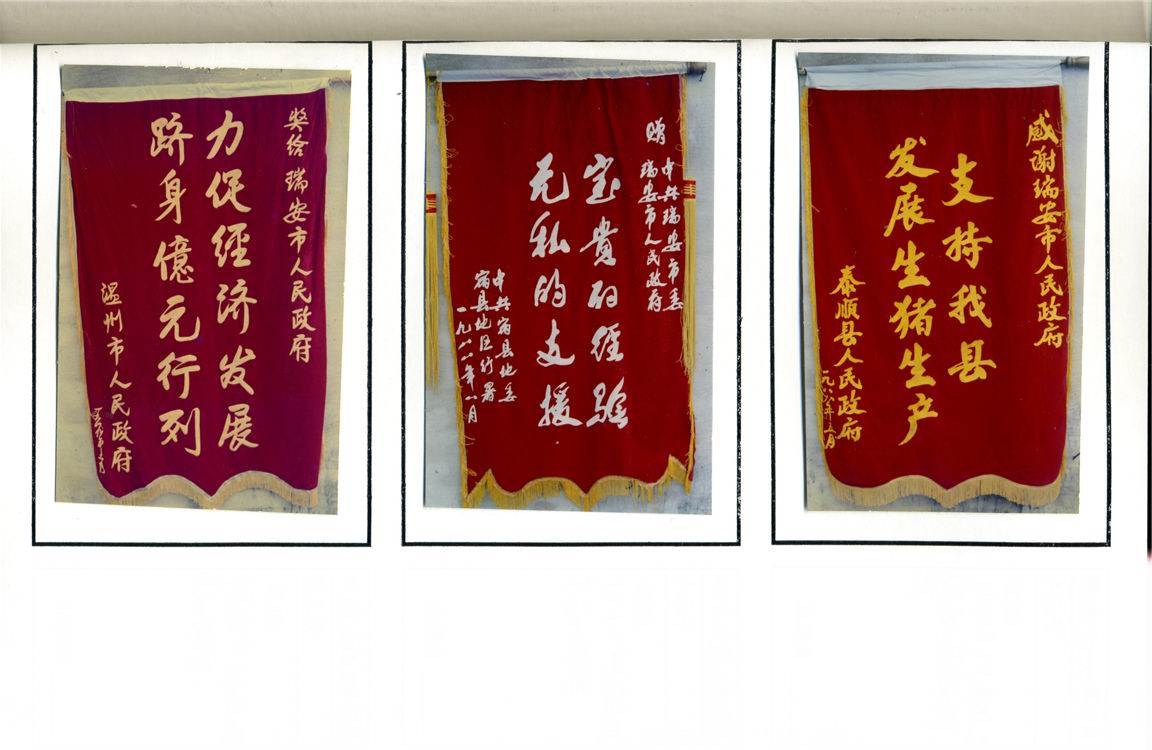 奖给瑞安市人民政府
力促經济发展
跻身億元行列
温州市人民政府
赠
中共瑞安市委
瑞安市人民政府
宝贵的经验
无私的支援
中共宿县地委
宿县地区行署
一九八八年八月
感谢瑞安市人民政府
支持我县
发展生猪生产
泰顺县人民政府